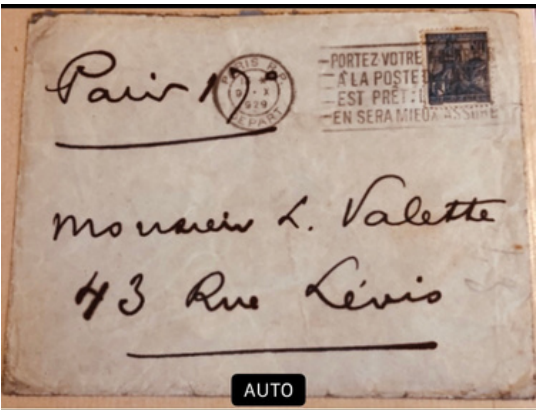 Paris 17e
PARIS R.P.
9 - X
1929
DEPART
PORTEZ VOTRE
A LA POSTE
EST PRÊT:
EN SERA MIEUX ASSURÉ
Monsieur L. Valette
43 Rue Lévis
AUTO